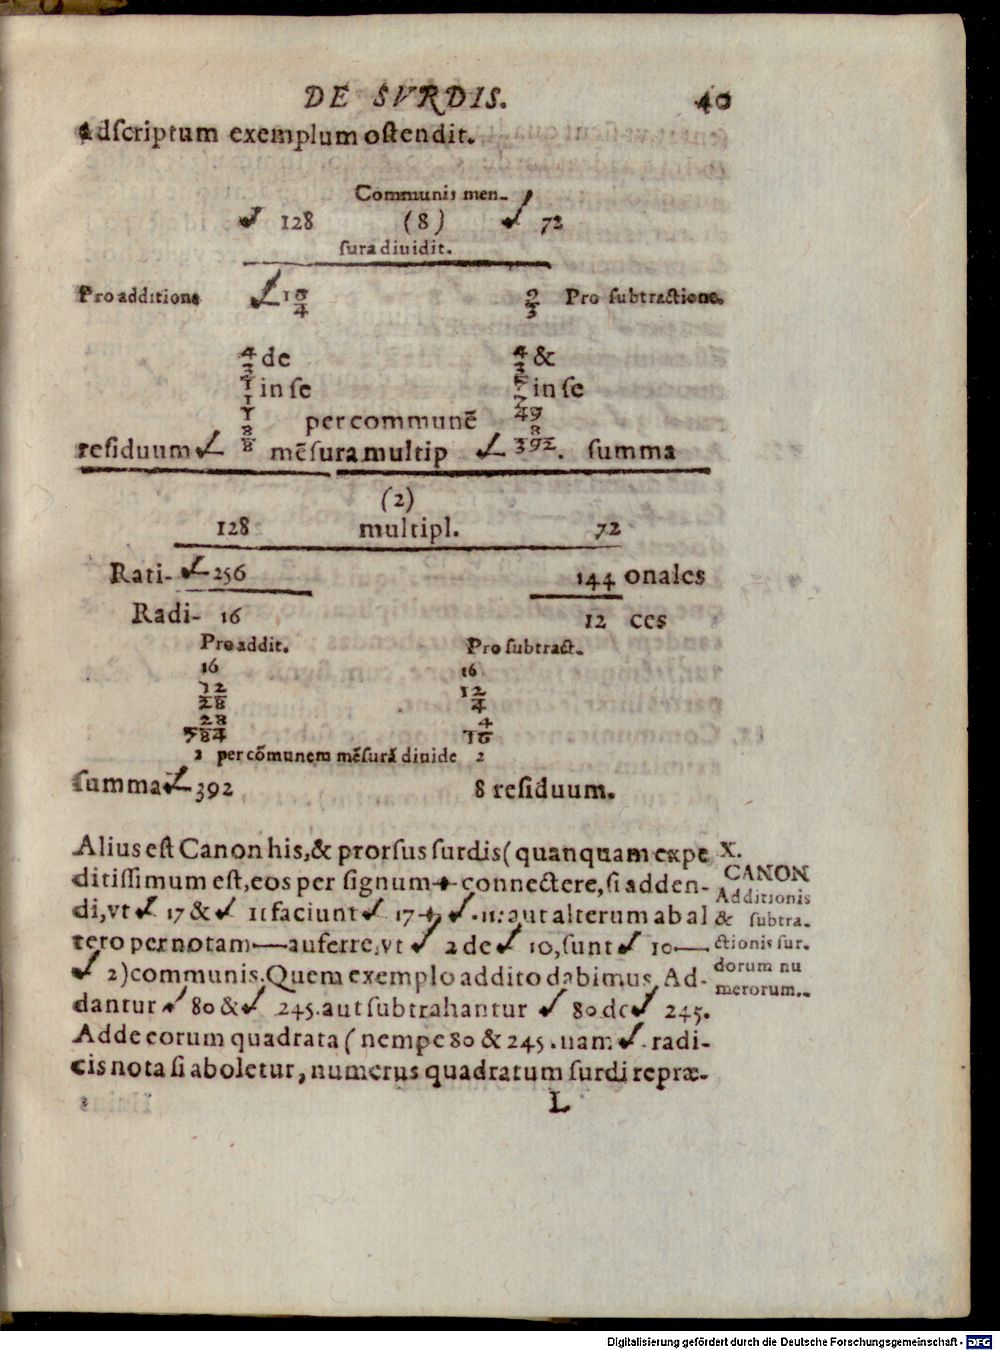 DE SVRDIS. 40
adſcriptum exemplum oſtendit.
Communis men-
√ 128 (8) √ 72
ſura diuidit.
Pro additione √ 16/4 9/3 Pro ſubtractione.
4/3 de 4/3 &
1/1 in ſe 7/7 in ſe
1 per communē 49
8 8
reſiduum √ 8 mēſura multip √ 392. ſumma
(2)
128 multipl. 72
Rati- √ 256 144 onales
Radi- 16 12 ces
Pro addit. Pro ſubtract.
16 16
12 12
28 4
28 4
784 16
2 per cōmunem mēſurā diuide 2
ſumma √ 392 8 reſiduum.
Alius eſt Canon his, & prorſus ſurdis (quanquam expe X.
ditiſſimum eſt, eos per ſignum + connectere, ſi adden- CANON
di, vt √ 17 & √ 11 faciunt √ 17 + √ . 11: aut alterum ab al Additionis
& ſubtra-
tero per notam — auferre, vt √ 2 de √ 10, ſunt √ 10 — ctionis ſur.
√ 2) communis. Quem exemplo addito dabimus, Ad- dorum nu
dantur √ 80 & √ 245. aut ſubtrahantur √ 80 de √ 245. merorum.
Adde eorum quadrata (nempe 80 & 245. nam √. radi-
cis nota ſi aboletur, numerus quadratum ſurdi repræ-
L
Digitalisierung gefördert durch die Deutsche Forschungsgemeinschaft - DFG